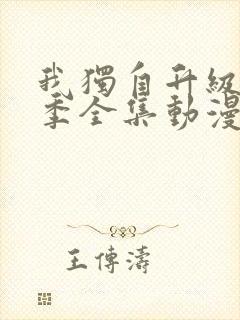 我獨自升級
季全集動漫
王傳濤